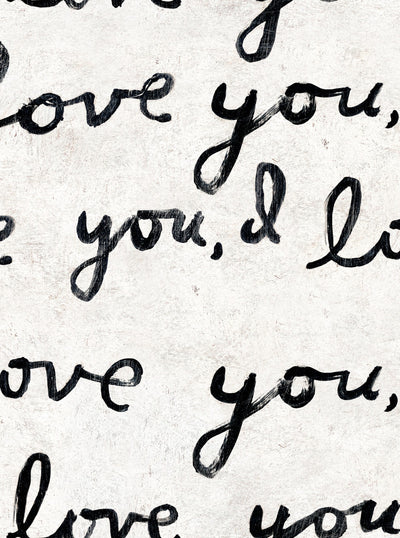 love you,
love you,
e you, I lo
ove you,
love you